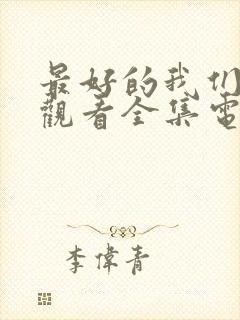 最好的我们
觀看全集電
李偉青